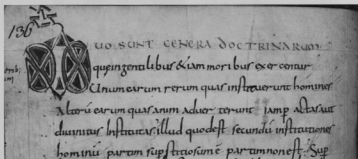 136
DUO SUNT GENERA DOCTRINARUM
quę in gentilibus &iam moribus exercentur
Unum earum rerum quas instituerunt homines
Alterũ earum quas anim aduerterunt iamp actas aut
diuinitus Institutas. illud quod est secundũ institutiones
hominũ partim sup stitiosum ẽ partim non est. Sup